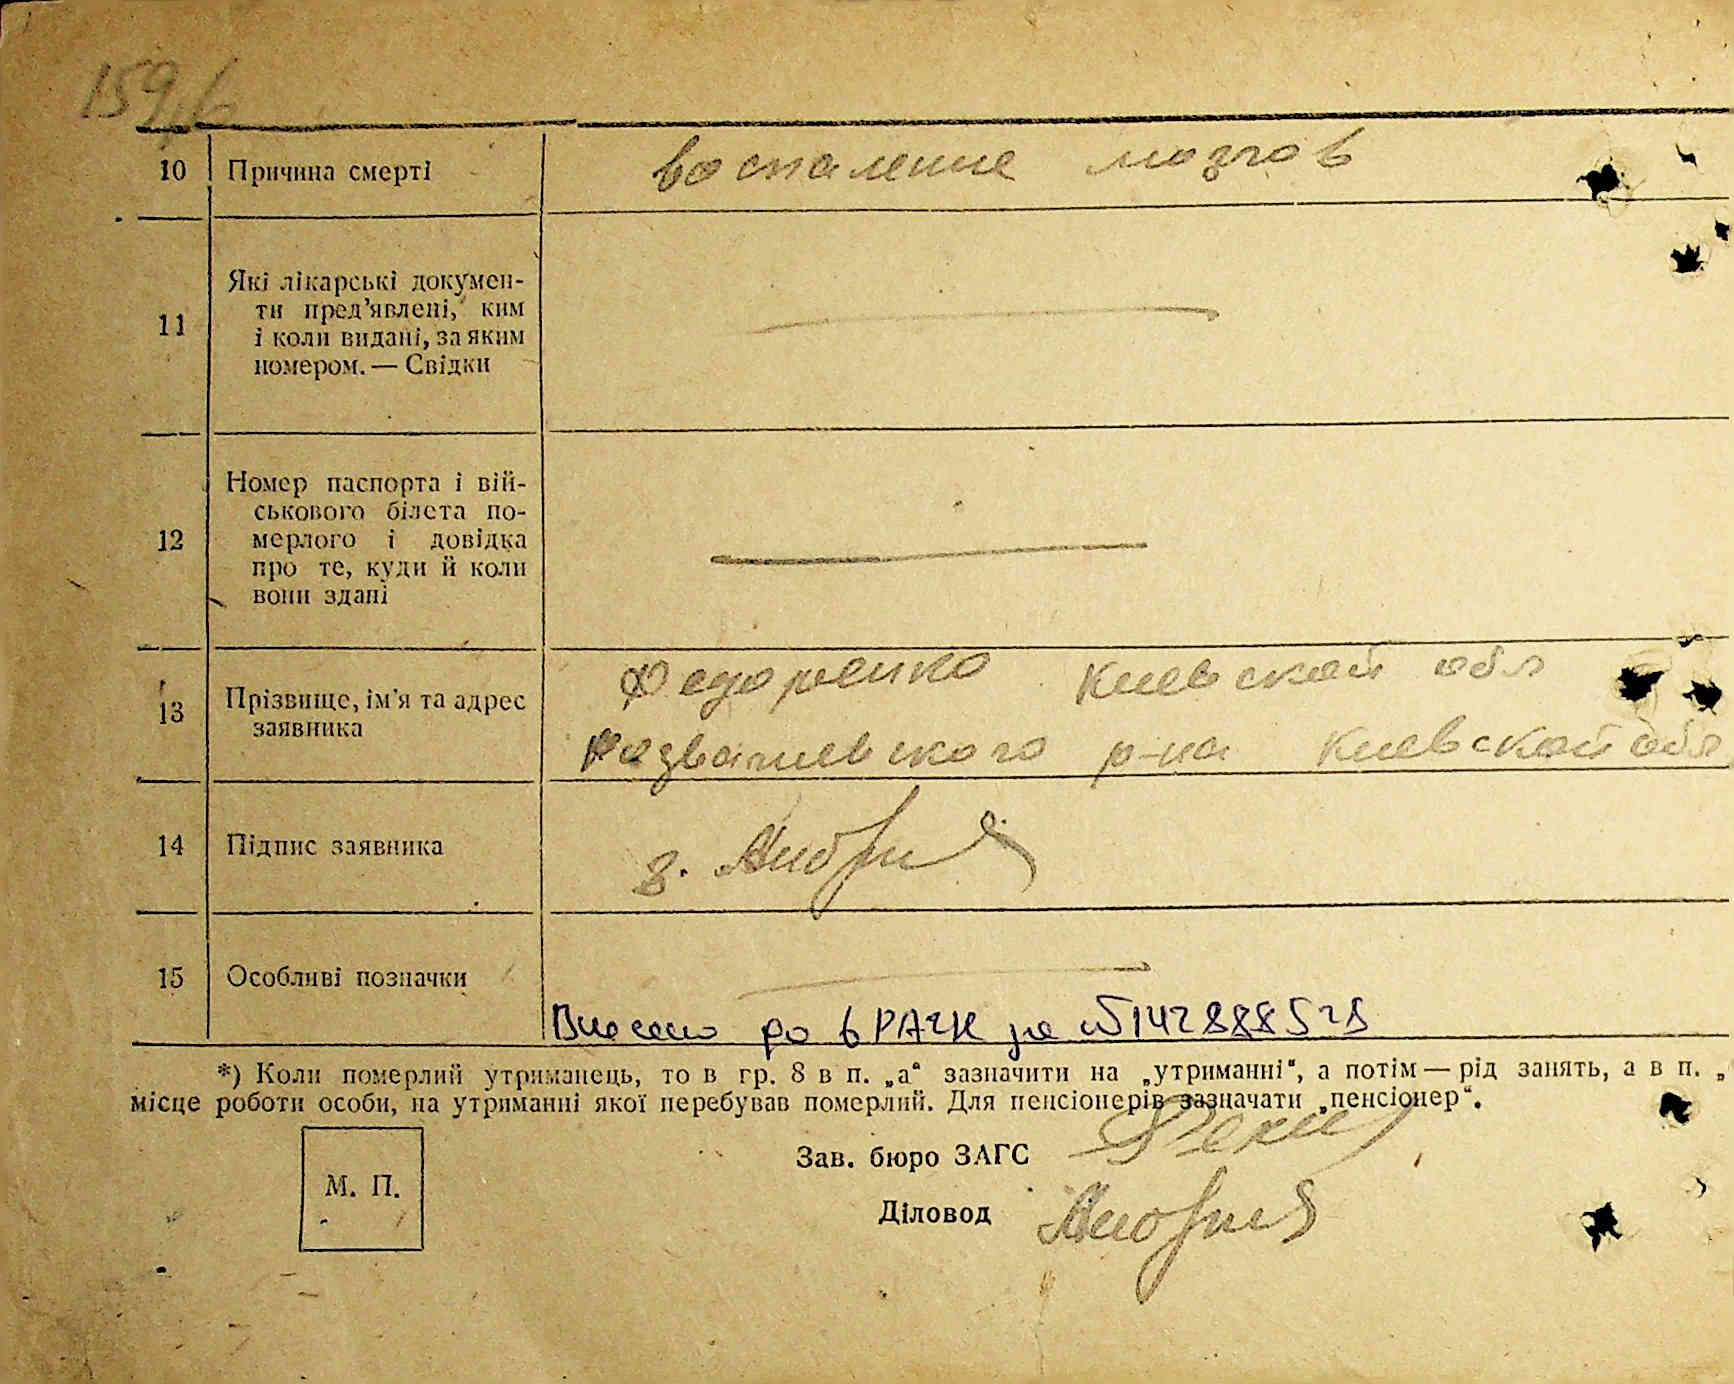 159
10 Причина смерті воспаление мозгов
11 Які лікарські докумен-
ти пред’явлені, ким
і коли видані, за яким
номером. — Свідки
12 Номер паспорта і вій-
ськового білета по-
мерлого і довідка
про те, куди й коли
вони здані
13 Прізвище, ім’я та адрес
заявника
Федоренко Киевской обл
Розважевского р-на Киевской обл
14 Підпис заявника
з.
15 Особливі позначки
Внесено до ДРАЦС за №
*) Коли померлий утриманець, то в гр. 8 в п. „а“ зазначити на „утриманні“, а потім — рід занять, а в п. „
місце роботи особи, на утриманні якої перебував померлий. Для пенсіонерів зазначати „пенсіонер“.
М. П.
Зав. бюро ЗАГС
Діловод